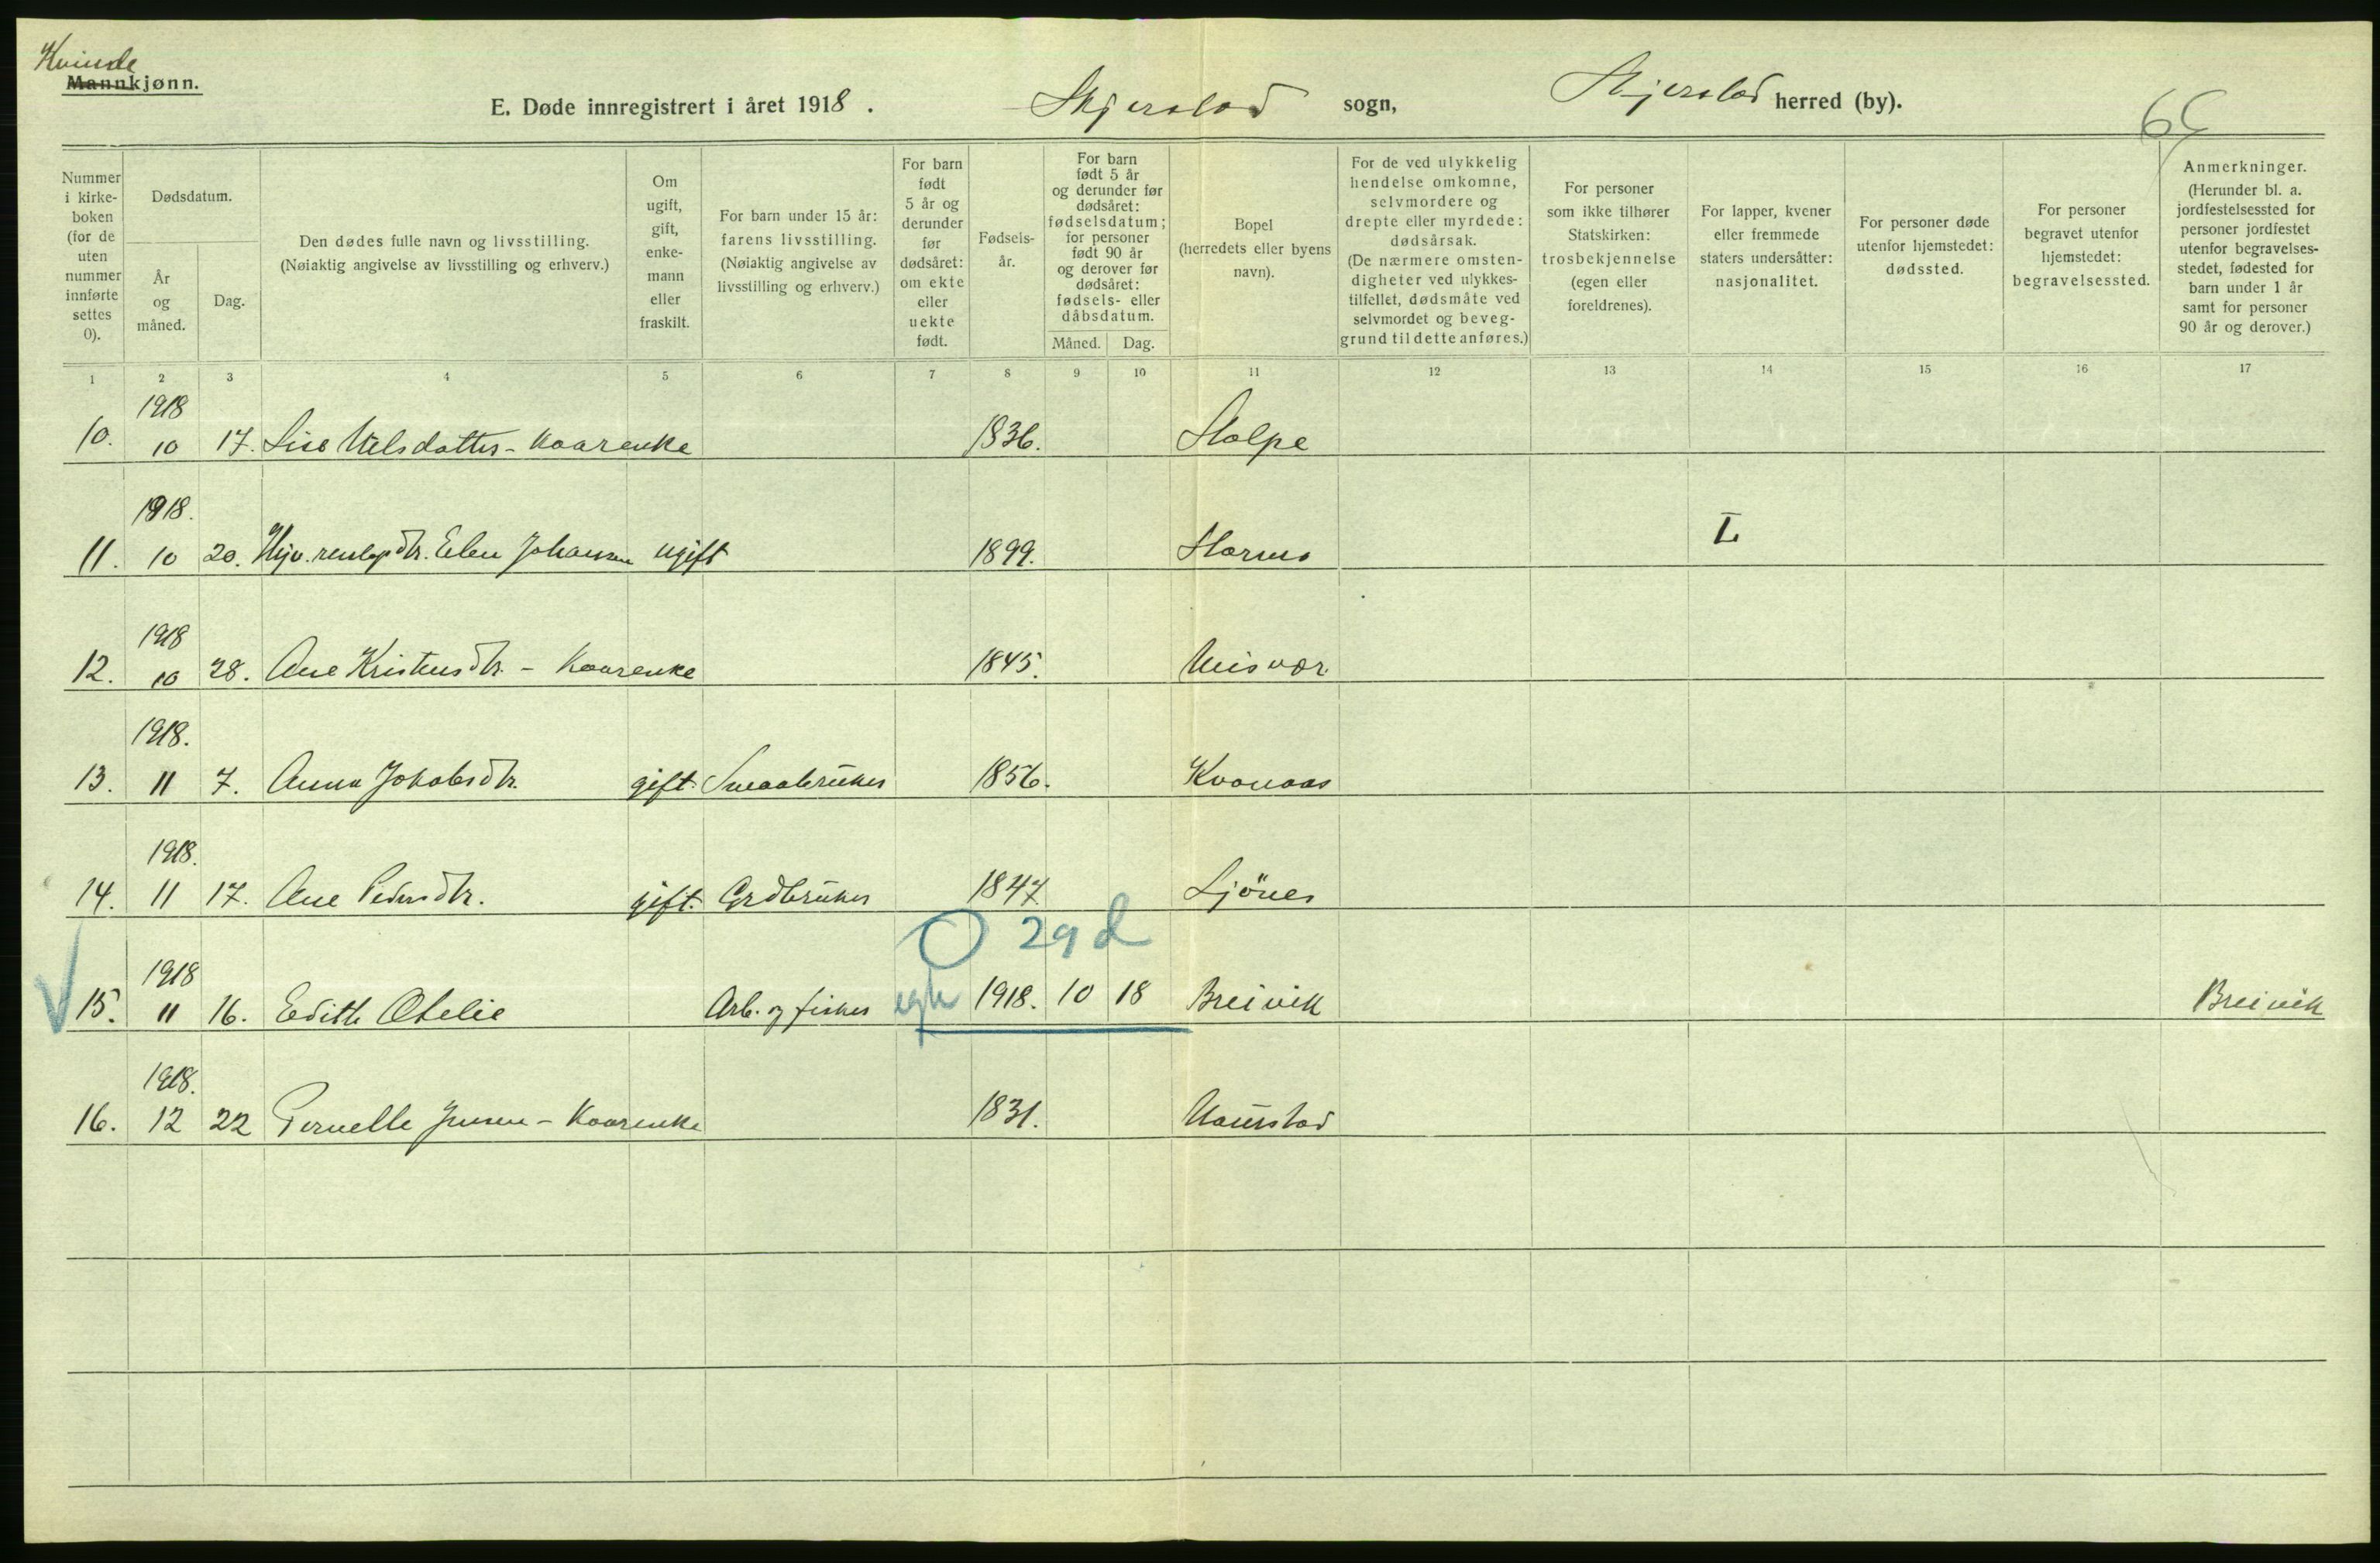 Kvinde
Mannkjønn.
E. Døde innregistrert i året 1918. Skjerstad sogn, Skjerstad herred (by).
Nummer i kirke-boken (for de uten nummer innførte settes 0).
Dødsdatum.
År og måned.
Dag.
Den dødes fulle navn og livsstilling. (Nøiaktig angivelse av livsstilling og erhverv.)
Om ugift, gift, enke-mann eller fraskilt.
For barn under 15 år: farens livsstilling. (Nøiaktig angivelse av livsstilling og erhverv.)
For barn født 5 år og derunder før dødsåret: om ekte eller uekte født.
Fødsels-år.
For barn født 5 år og derunder før dødsåret: fødselsdatum; for personer født 90 år og derover før dødsåret: fødsels- eller dåbsdatum.
Måned. Dag.
Bopel (herredets eller byens navn).
For de ved ulykkelig hendelse omkomne, selvmordere og drepte eller myrdede: dødsårsak. (De nærmere omsten-digheter ved ulykkes-tilfellet, dødsmåte ved selvmordet og beveg-grund til dette anføres.)
For personer som ikke tilhører Statskirken: trosbekjennelse (egen eller foreldrenes).
For lapper, kvener eller fremmede staters undersåtter: nasjonalitet.
For personer døde utenfor hjemstedet: dødssted.
For personer begravet utenfor hjemstedet: begravelsessted.
Anmerkninger. (Herunder bl. a. jordfestelsessted for personer jordfestet utenfor begravelses-stedet, fødested for barn under 1 år samt for personer 90 år og derover.)
1 2 3 4 5 6 7 8 9 10 11 12 13 14 15 16 17
1918
10. 10 17. Lise Nilsdatter - Kaarenke 1836. Stolpe
1918.
11. 10 20. Elen Johansen ugift 1899. L
1918
12. 10 28. Ane Kristensdtr. - Kaarenke 1845. Misvær.
1918.
13. 11 7. Anna Jakobsdtr. gift. Smaabruker 1856. Kvanaas
1918.
14. 11 17. Ane Pedersdtr. gift. Grdbruker 1847 Ljönes
29 d
1918
15. 11 16. Edith Otelie Arb. og fisker egte 1918. 10 18 Breivik Breivik
1918.
16. 12 22 Pernelle Jensen - Kaarenke 1831. Naurstad